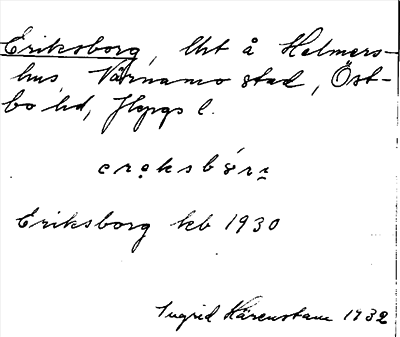 Eriksborg, lht å Helmers-
hus, Värnamo stad, Öst-
bo hd, Jkpgs l.
Eriksborg kb 1930
Ingrid Härenstam 1932